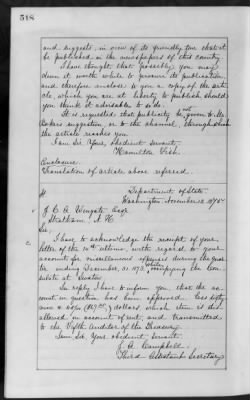 518
and suggests, in view of its friendly tone that it
be published in the newspapers of this country.
I have thought that possibly, you may
deem it worth while to procure its publication,
and therefore enclose to you a copy of the arti-
cle, which you are at liberty to publish should
you think it advisable to do so.
It is requested that publicity be not given to Mr
Bokers suggestion or to the channel, through which
the article reaches you.
I am Sir, Your obedient servant,
Hamilton Fish.
Enclosure.
Translation of article above referred.
Department of State.
Washington November 12 1875
J. C. A. Wingate Esqr
Stratham, N. H.
Sir,
I have to acknowledge the receipt of your
letter of the 10th ultimo, with regard to your
account for miscellaneous expenses during the year
ending December 31. 1873, while occupying the Con-
sulate at Swatow.
In reply I have to inform you, that the ac-
count in question has been approved, less sixty
nine &
dollars, which item is dis-
allowed in account of rent, and transmitted
to the Fifth Auditor of the Treasury.
I am, Sir, Your obedient servant.
J. A. Campbell
Third Assistant Secretary